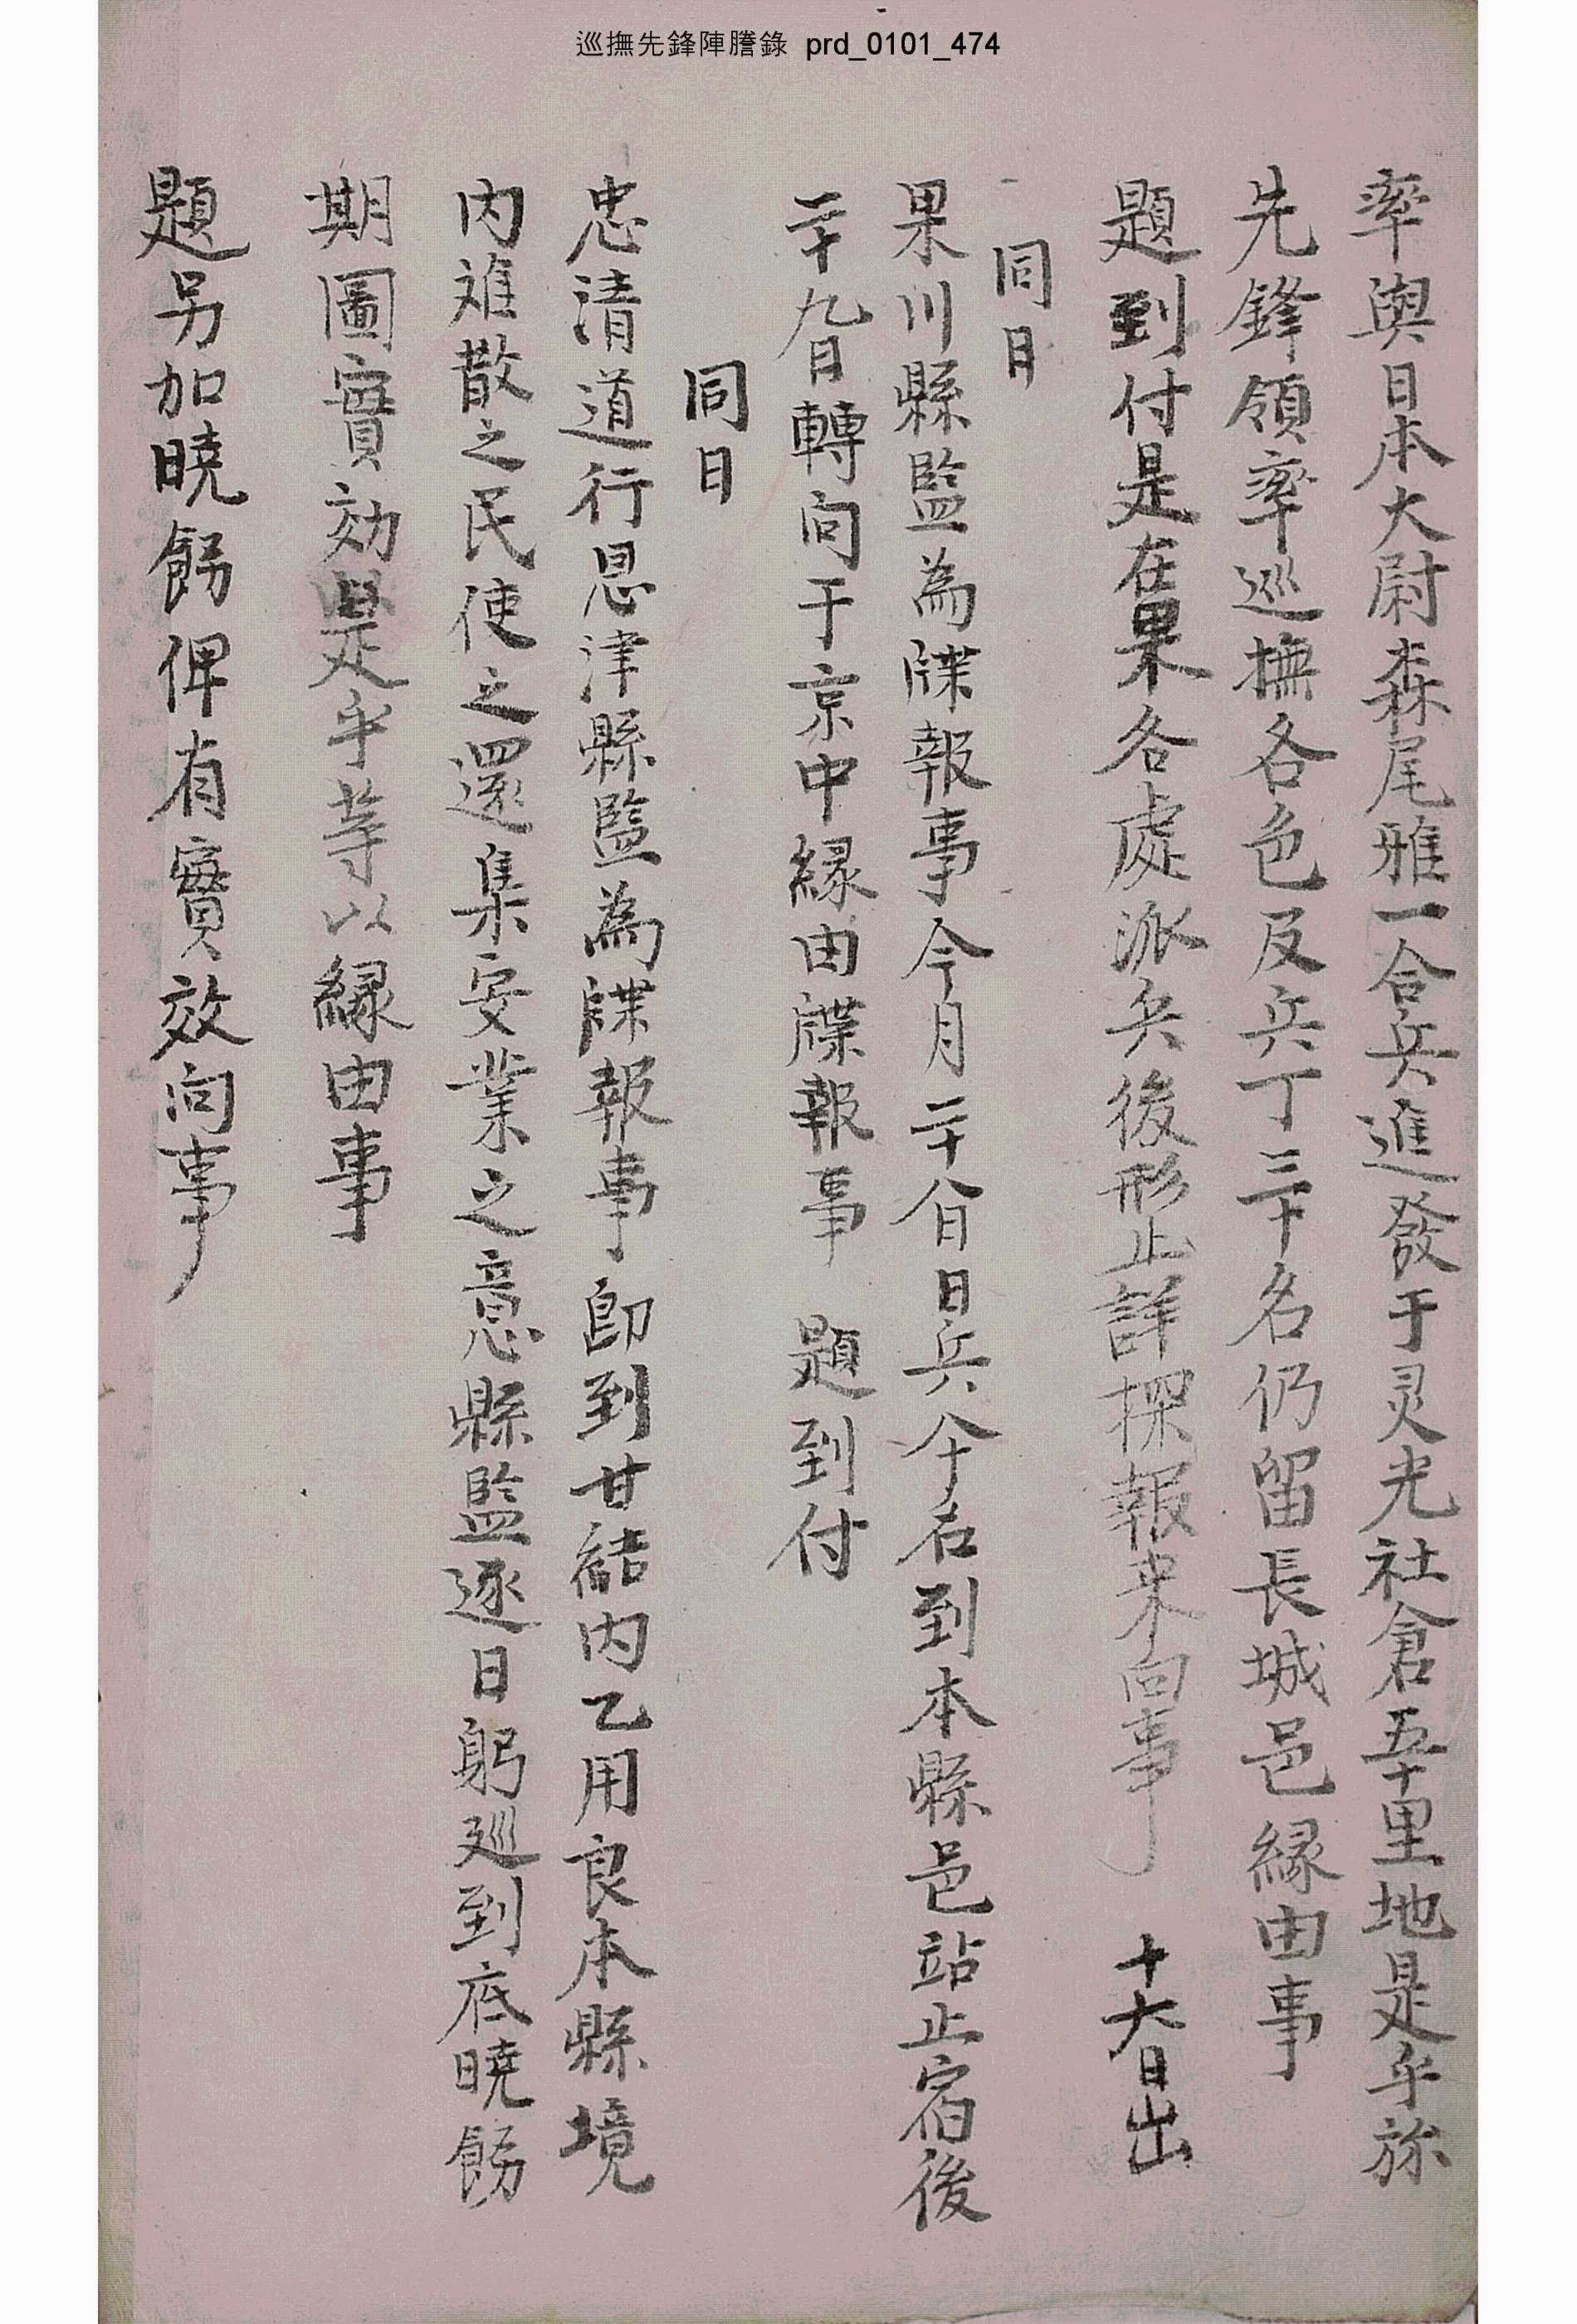 巡撫先鋒陣謄錄 prd_0101_474
率與日本大尉森尾雅一合兵進發于灵光社倉五十里地是乎旀
先鋒領率巡撫各色及兵丁三十名仍留長城邑緣由事
題到付是在果各處派兵後形止詳探報来向事 十六日出
同日
果川縣監為牒報事今月二十八日日兵伞名到本縣邑站止宿後
二十九日轉向于京中緣由牒報事 題到付
同日
忠清道行恩津縣監為牒報事卽到甘結內乙用良本縣境
內難散之民使之還集安業之意縣監逐日躬廵到底曉飭
期圖實効是乎等以緣由事
題另加曉飭俾有實效向事